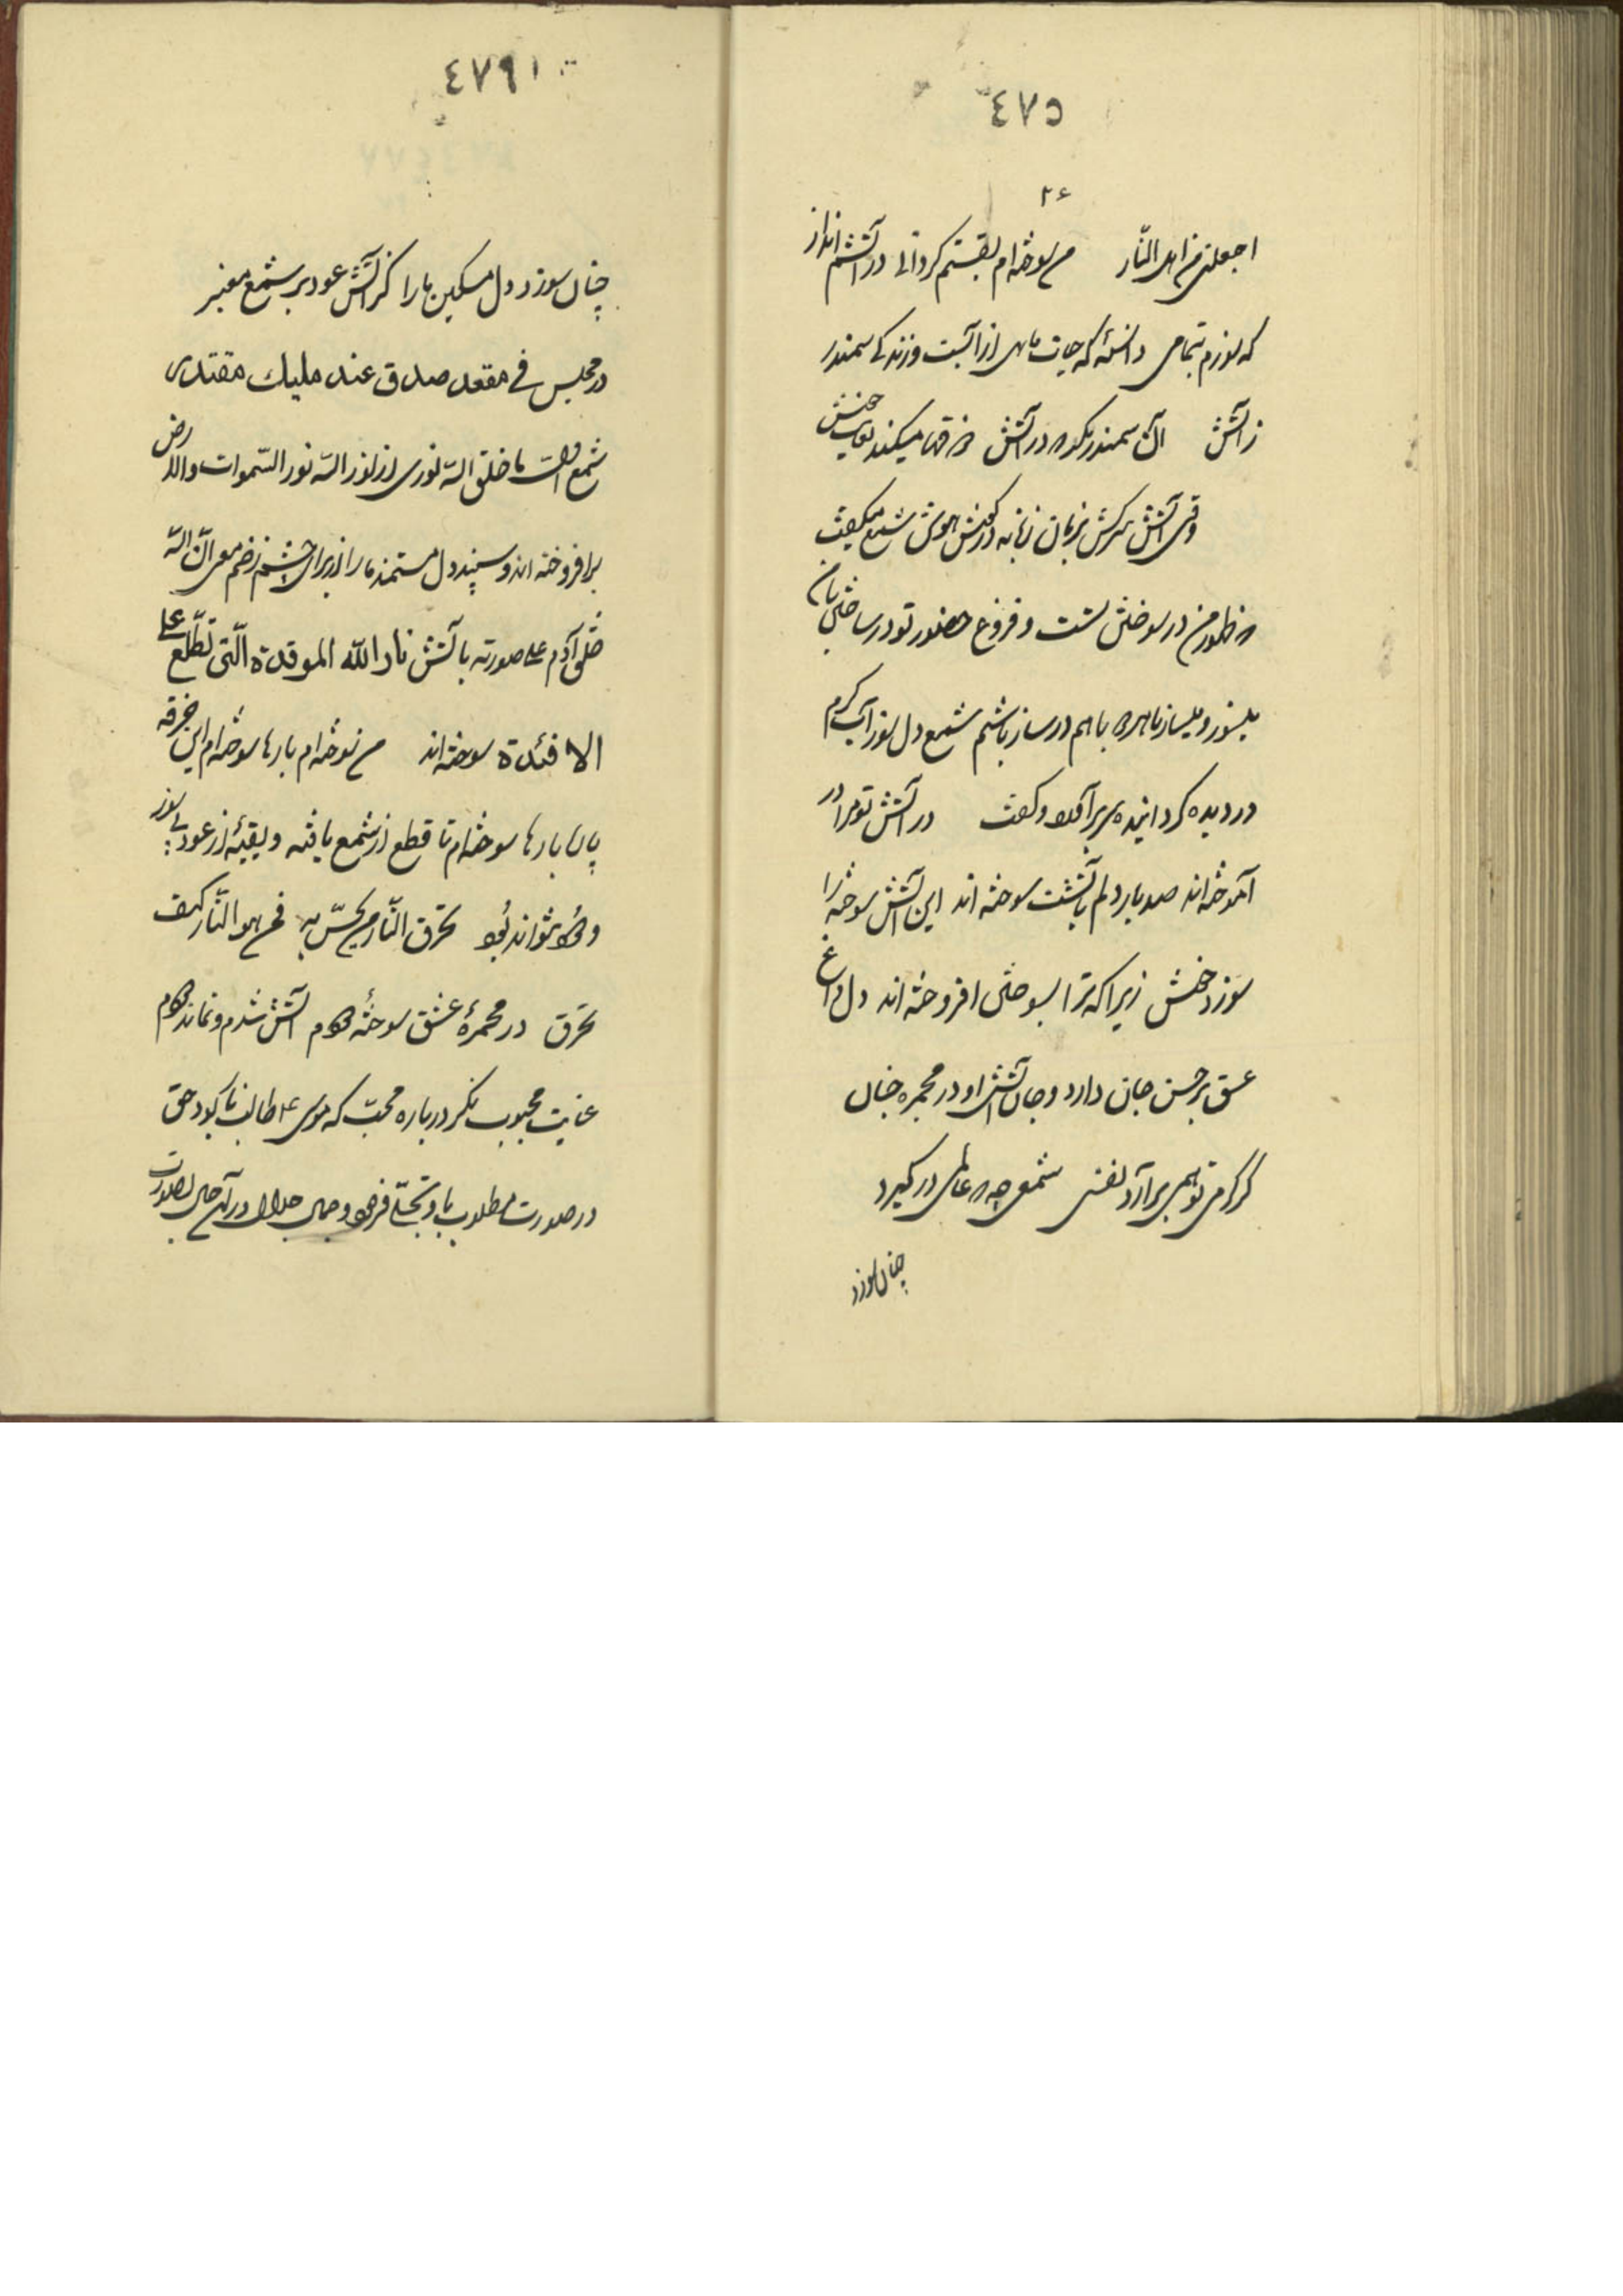 ٤٧٥
٢٤
اجعلنی من اهل النّار من سوخته ام بقسمتم کردانی در آتشم انداز
که سوزم بتمامی دانسته که حیات ماهی از آبست و زندکی سمندر
ز آتش الآن سمندر در آتش میکند
وقتی آتش سرکش بزبان زبانه در کوش هوش شمع میکفت
ظهور من در سوختن تست و فروغ حضور تو در ساختن با من
بسوز و بساز تا هر دو باهم در ساز باشیم شمع دل سوز آب کرم
در دیده کردانیده و کفت در آتش تو مرا در
آموخته اند صد بار دلم بآتشت سوخته اند این آتش سوخته را
سوزد خنش زیرا که ترا بسوختن افروخته اند دل داغ
عشق بر حسن جان دارد و جان آتش او در مجمره جنان
کر کرمی تو همی برآرد نفسی شمعی چه عالمی درکیرد
چنان سوزد
٤٧٦
چنان سوزد دل مسکین ما را کز آتش عود بر شمع معنبر
در مجلس فی مقعد صدق عند ملیك مقتدر
شمع ما خلق الله نوری از نور الله نور السّموات والارض
برافروخته اند و سپند دل مستمند ما را از برای چشم زخم معنی انّ الله
خلق آدم علی صورته بآتش نار الله الموقدة الّتی تطّلع علی
الافئدة سوخته اند من نه سوخته ام بارها سوخته ام این خرقه
بارها سوخته ام تا قطع از شمع یافته و بقیّهٔ از عود بی سوز
نتواند بود تحرق النّار من یحسّ به فمن هو النّار کیف
تحرق در مجمرهٔ عشق سوخته آتش شدم و نماند
عنایت محبوب نکر درباره محبّ که موسی ٤ طالب حق
در صورت مطلوب باو تجلّی و جمال جلال در آن حال بصورت